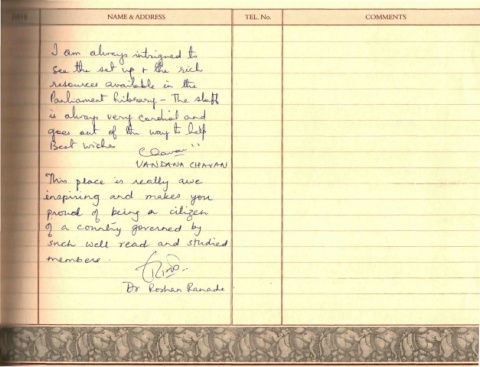 NAME & ADDRESS
TEL. No.
COMMENTS
I am always intrigued to
see the set up + the rich
resources available in the
Parliament Library – The staff
is always very cordial and
goes out of the way to help
Best wishes
VANDANA CHAVAN
This place is really awe
inspiring and makes you
proud of being a citizen
of a country governed by
such well read and studied
members.
Dr Roshan Ranade